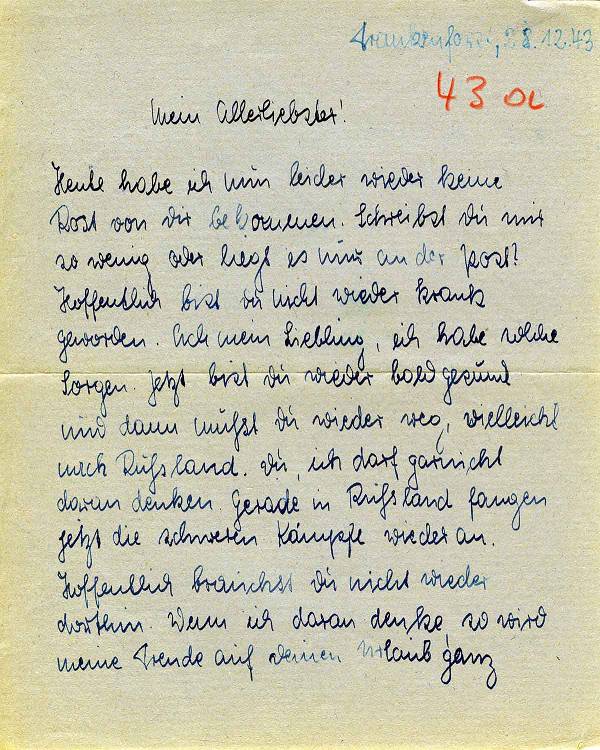 Frankenforst, 28.12.43
43 a
Mein Allerliebster!
Heute habe ich nun leider wieder keine
Post von dir bekommen. Schreibst du mir
so wenig oder liegt es nur an der Post?
Hoffentlich bist du nicht wieder krank
geworden. Ach mein Liebling, ich habe solche
Sorgen. Jetzt bist du wieder bald gesund
und dann mußt du wieder weg, vielleicht
nach Rußland. Du, ich darf garnicht
daran denken. Gerade in Rußland fangen
jetzt die schweren Kämpfe wieder an.
Hoffentlich brauchst du nicht wieder
dorthin. Wenn ich daran denke, so wird
meine Freude auf deinen Urlaub ganz